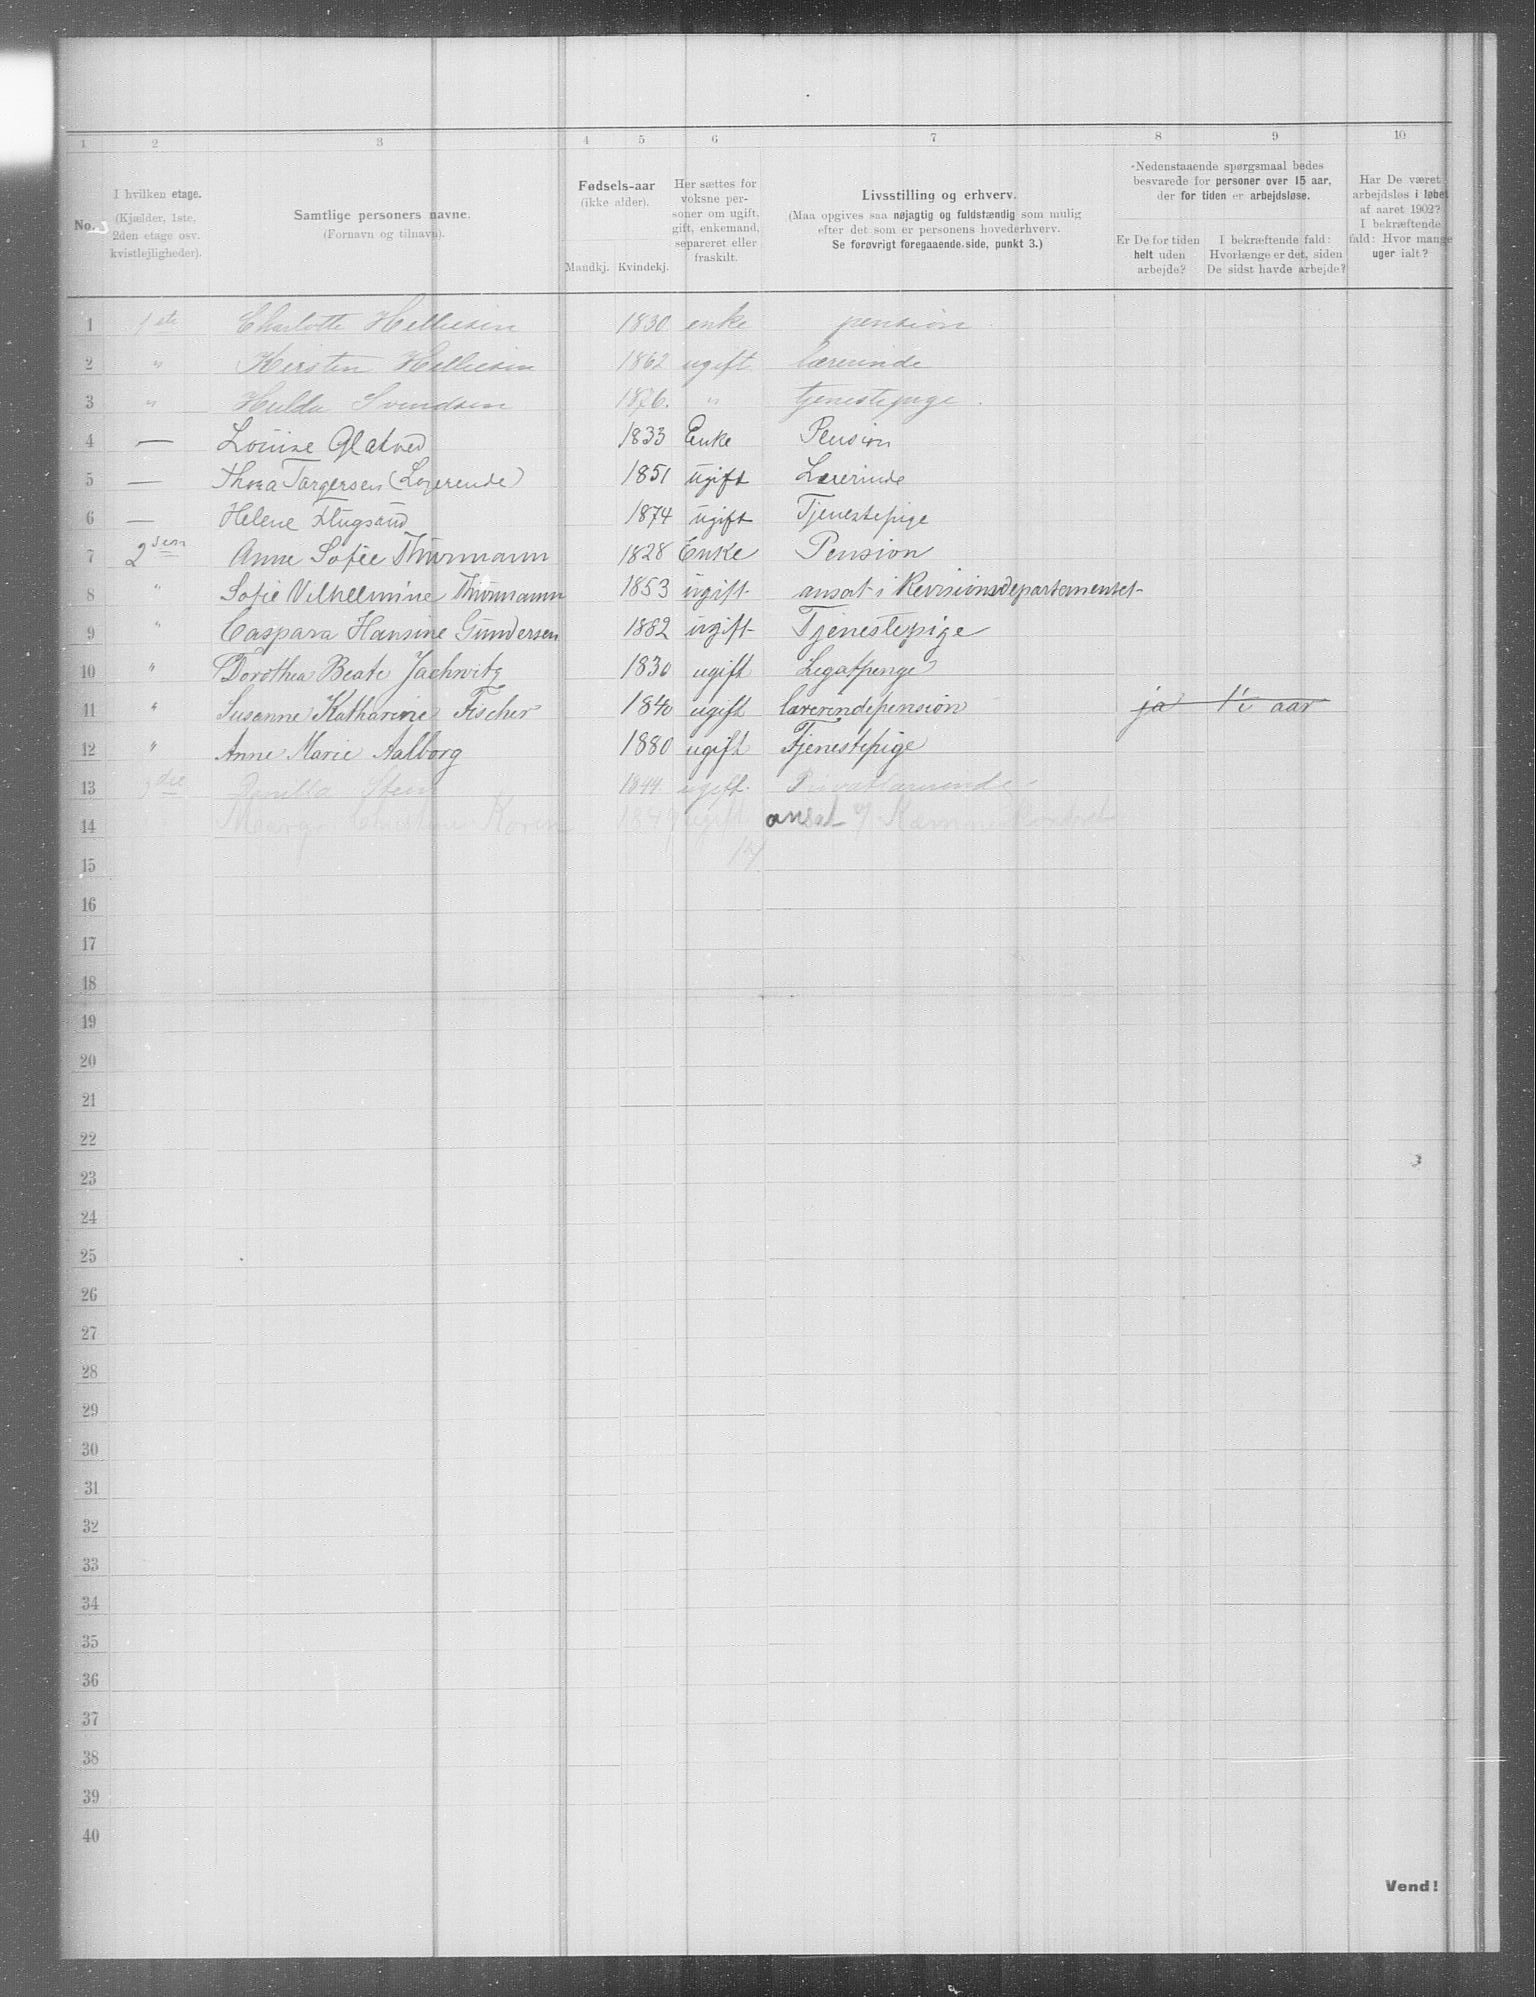 1 2 3 4 5 6 7 8 9 10
No.
I hvilken etage.
(Kjælder, 1ste,
2den etage osv.
kvistlejligheder).
Samtlige personers navne.
(Fornavn og tilnavn).
Fødsels-aar
(ikke alder).
Mandkj. Kvindekj.
Her sættes for
voksne per-
soner om ugift,
gift, enkemand,
separeret eller
fraskilt.
Livsstilling og erhverv.
(Maa opgives saa nøjagtig og fuldstændig som mulig
efter det som er personens hovederhverv.
Se forøvrigt foregaaende side, punkt 3.)
Nedenstaaende spørgsmaal bedes
besvarede for personer over 15 aar,
der for tiden er arbejdsløse.
Er De for tiden
helt uden
arbejde?
I bekræftende fald:
Hvorlænge er det, siden
De sidst havde arbejde?
Har De været
arbejdsløs i løbet
af aaret 1902?
I bekræftende
fald: Hvor mange
uger ialt?
1 1ste Charlotte Helliesen 1830 enke pension
2 " Kirsten Helliesen 1862 ugift lærerinde
3 " Hulda Svendsen 1876. " tjenestepige.
4 — Louise Glatved 1833 Enke Pension
5 — Thora Torgersen (Logerende) 1851 ugift Lærerinde
6 — Helene Flugsrud 1874 ugift Tjenestepige
7 2den Anne Sofie Thurmann 1828 Enke Pension
8 " Sofie Vilhelmine Thurmann 1853 ugift ansat i Revisionsdepartementet
9 " Caspara Hansine Gundersen 1882 ugift Tjenestepige
10 " Dorothea Beate Jachwitz 1830 ugift Legatpenge
11 " Susanne Katharine Fischer 1840 ugift lærerindepension ja aar
12 " Anne Marie Aalborg 1880 ugift Tjenestepige
13 3die Stein 1844 ugift. Privatlærerinde
14 ugift ansat
15
16
17
18
19
20
21
22
23
24
25
26
27
28
29
30
31
32
33
34
35
36
37
38
39
40
Vend!